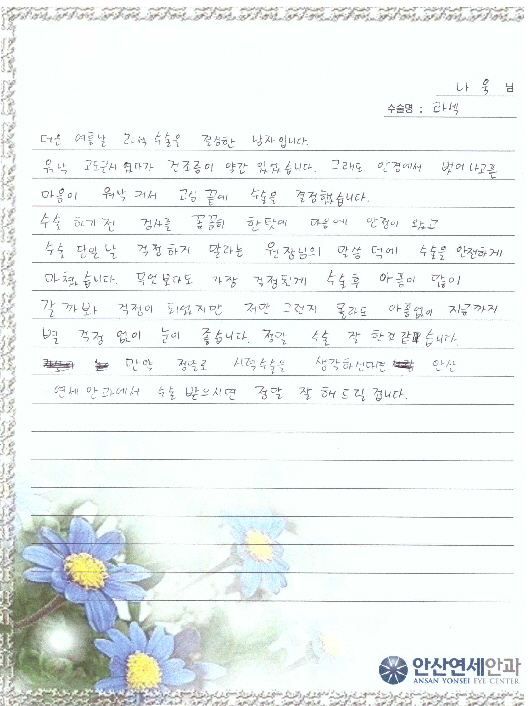 나 욱 님
수술명 : 라섹
더운 여름날 라섹 수술을 결심한 남자입니다.
워낙 고도근시 였다가 건조증이 약간 있었습니다. 그래도 안경에서 벗어나고픈
마음이 워낙 커서 고심 끝에 수술을 결정했습니다.
수술 하기 전 검사를 꼼꼼히 한탓에 마음에 안정이 왔고
수술 당일 날 걱정하지 말라는 원장님의 말씀 덕에 수술을 안전하게
마쳤습니다. 무엇보다도 가장 걱정된게 수술 후 아픔이 많이
갈까봐 걱정이 되었지만 저만 그런지 몰라도 아픔없이 지금까지
별 걱정 없이 눈이 좋습니다. 정말 수술 잘 한것 같습니다.
만약 정말로 시력수술을 생각하신다면 안산
연세 안과에서 수술 받으시면 정말 잘 해드릴 겁니다.
안산연세안과
ANSAN YONSEI EYE CENTER